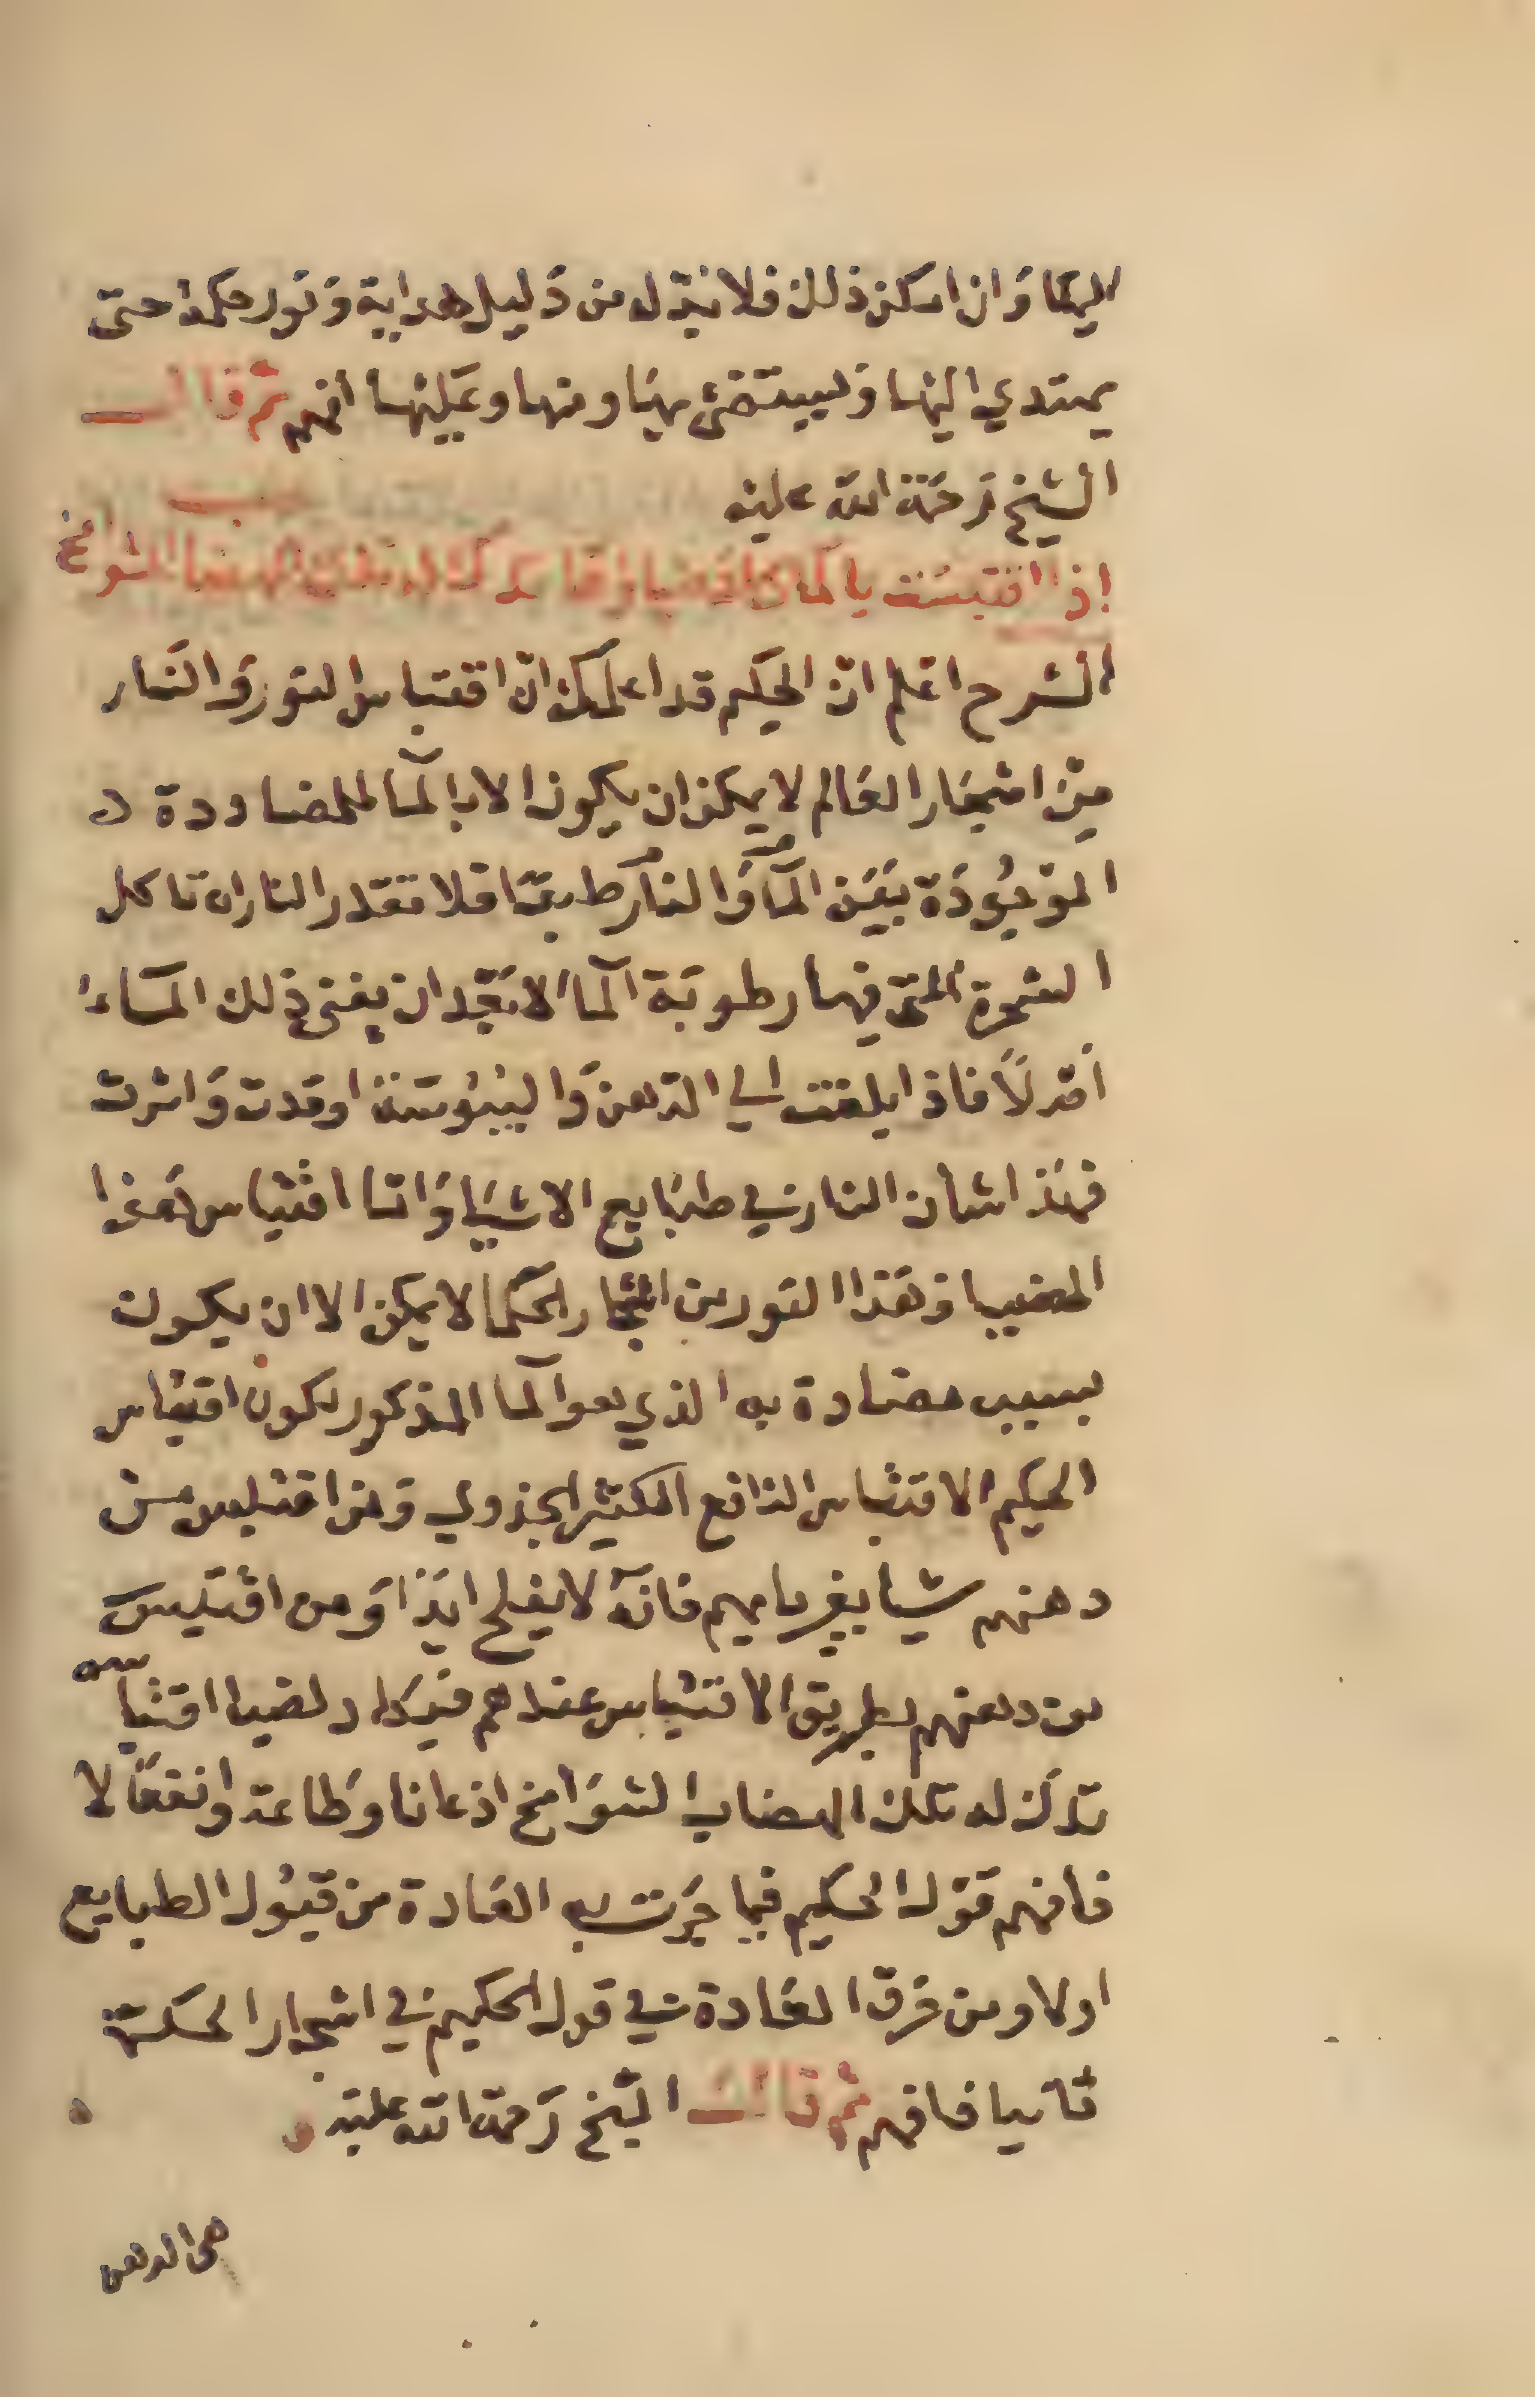 اليها وان امكن ذلك فلا بد له من دليل هداية ونور حكمة حتى
يهتدي اليها ويستضئ بها ومنها وعليها افهم ثم قال
الشيخ رحمة الله عليه
اذا اقتبست بالماء تدكدكت الهضاب الشوامخ
الشرح اعلم ان الحكيم قد اعلمك ان اقتباس النور والنار
من اشجار العالم لا يمكن ان يكون الا بالما للمضاددة
الموجودة بين المآ والنار طبعا فلا تقدر النار ان تاكل
الشجرة التي فيها رطوبة الما الا بعد ان يفنى ذلك الماء
اولا فاذا بلغت الى الدهن واليبوسة اوقدت واثرت
فهذا شان النار في طبايع الاشيا واما اقتباس هذا
الضيا وهذا النور من اشجار الحكما لا يمكن الا ان يكون
بسبب مضادة به الذي هو المآ المذكور لكون اقتباس
الحكيم الاقتباس النافع الكثير الجدوي ومن اقتبس من
دهنهم شيا بغير مايهم فانه لا يفلح ابدا ومن اقتبس
من دهنهم بطريق الاقتباس عندهم فيكاد لضيا اقتباسه
تدكدك له تلك الهضاب الشوامخ اذعانا وطاعة وانفعالا
فافهم قول الحكيم فيما جرت به العادة من قبول الطبايع
اولا ومن خرق العادة في قول الحكيم في اشجار الحكمة
ثانيا فافهم ثم قال الشيخ رحمة الله عليه
هي الدهن